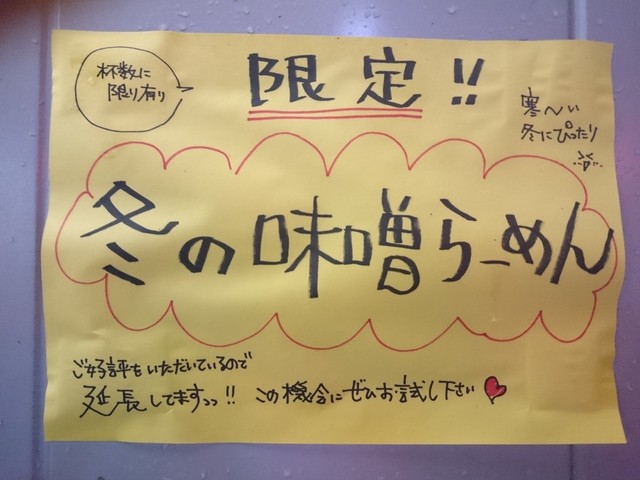 杯数に
限り有り
限定!!
寒〜い
冬にぴったり
冬の味噌らーめん
ご好評をいただいているので
延長してますっっ!! この機会にぜひお試し下さい